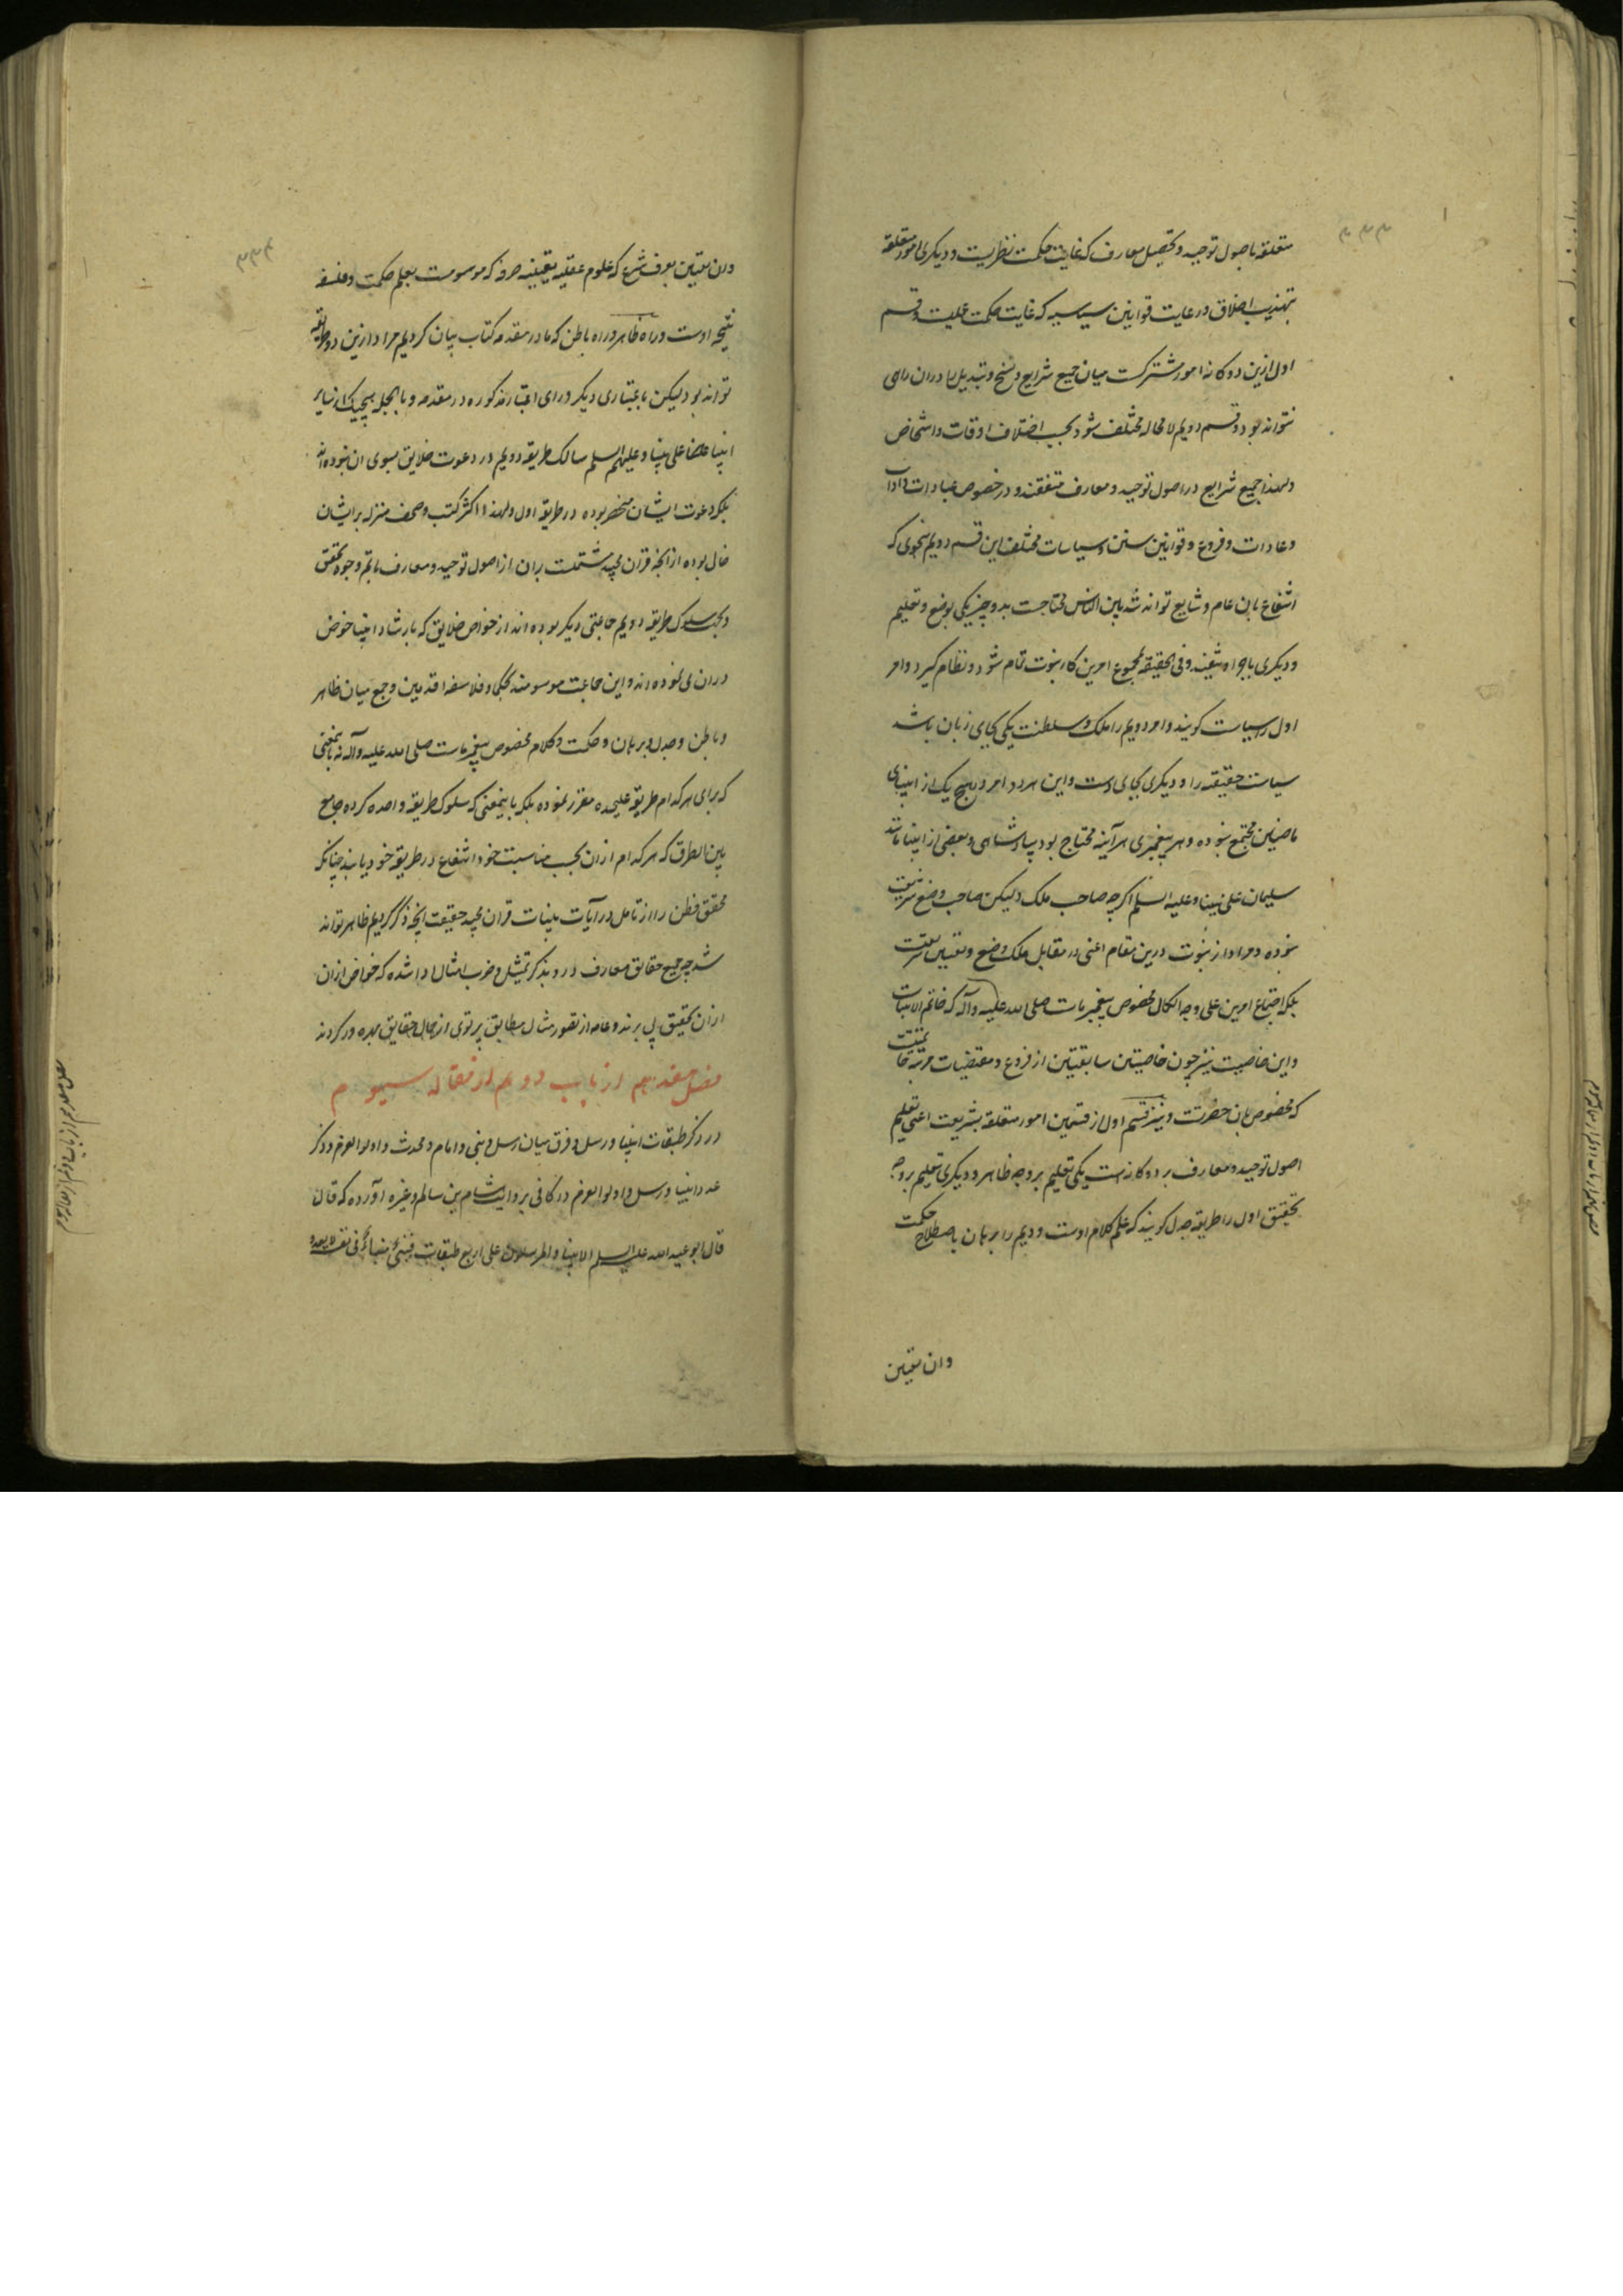 ۳۳۳
متعلقه باصول توحید و تحصیل معارف که غایت حکمت نظریست و دیگری امور متعلقه
بتهذیب اخلاق و رعایت قوانین سیاسیه که غایت حکمت عملیست و قسم
اول ازین دوگانه امور مشترکست میان جمیع شرایع و نسخ و تبدیل را دران راهی
نتواند بود و قسم دویم لا محاله مختلف شود بحسب اختلاف اوقات و اشخاص
و لهذا جمیع شرایع در اصول توحید و معارف متفقند و در خصوص عبادات و آداب
و عادات و فروع و قوانین سنن و سیاسات مختلف این قسم دویم بنحوی که
انتفاع بان عام و شایع تواند شد بین الناس محتاجست بدو چیز یکی بوضع و تعلیم
و دیگری باجرا و تنفیذ و فی الحقیقه بمجموع امرین کار نبوت تمام شود و نظام گیرد و امر
اول را سیاست گویند و امر دویم را ملک و سلطنت یکی بجای زبان باشد
سیاست حقیقه را و دیگری بجای دست و این هر دو امر در هیچ یک از انبیای
ماضین مجتمع نبوده و هر پیغمبری هر آینه محتاج بود بپادشاهی و بعضی از انبیا مانند
سلیمان علی نبینا و علیه السلم اگرچه صاحب ملک ولیکن صاحب وضع شریعت
نبوده و مراد از نبوت درین مقام اعنی در مقابل ملک وضع و تعیین شریعتست
بلکه اجتماع امرین علی وجه الکمال مخصوص پیغمبر ماست صلی الله علیه وآله که خاتم الانبیاست
و این خاصیت نیز چون خاصیتین سابقتین از فروع و مقتضیات مرتبه خاتمیتست
که مخصوص بان حضرتست و نیز قسم اول از قسمین امور متعلقه بشریعت اعنی تعلیم
اصول توحید و معارف بر دوگانه است یکی تعلیم بر وجه ظاهر و دیگری تعلیم بر وجه
تحقیق اول را طریقه جدل گویند که علم کلام اوست و دویم را برهان باصطلاح حکمت
وان یقین
۳۳۴
وان یقین بعرف شرع که علوم عقلیه یقینیه صرفه که موسومست بعلم حکمت و فلسفه
نتیجه اوست و راه ظاهر و راه باطن که ما در مقدمه کتاب بیان کردیم مراد ازین دو طریقه
تواند بود لیکن باعتباری دیگر ورای اعتبار مذکوره در مقدمه و بالجمله هیچیک از سایر
انبیا علی نبینا و علیهم السلم سالک طریقه دویم در دعوت خلایق بسوی ان نبوده اند
بلکه دعوت ایشان منحصر بوده در طریقه اول و لهذا اکثر کتب و صحف منزله بر ایشان
خالی بوده از انچه قران مجید مشتملست بران از اصول توحید و معارف باتم وجوه تحقق
و بجهت سلوک طریقه دویم جماعتی دیگر بوده اند از خواص خلایق که بارشاد انبیا خوض
دران می نموده اند و این جماعت موسومند بحکما و فلاسفه اقدمین و جمع میان ظاهر
و باطن و جدل و برهان و حکمت و کلام مخصوص پیغمبر ماست صلی الله علیه وآله نه باینمعنی
که برای هر کدام طریقه علیحده مقرر نموده بلکه باینمعنی که سلوک طریقه واحده کرده جامع
بین الطرق که هر کدام ازان بحسب مناسبت خود انتفاع در طریقه خود یابند چنانکه
محقق فطن را از تامل در آیات بینات قران مجید حقیقت انچه ذکر کردیم ظاهر تواند
شد چه جمیع حقایق معارف در وی بذکر تمثیل و ضرب امثال ادا شده که خواص ازان
ازان بتحقیق پی برند و عامه از تصور مثال مطابق پرتوی از جمال حقایق بهره ور گردند
فصل هفدهم از باب دویم از مقاله سیوم
در ذکر طبقات انبیا و رسل و فرق میان رسل و نبی و امام و محدث و اولوا العزم و ذکر
عدد انبیا و رسل و اولوا العزم در کافی بروایت هشام بن سالم و غیره آورده که قال
قال ابو عبد الله علیه السلم الانبیا و المرسلون علی اربع طبقات فنبی منبأ فی نفسه لا یعدو